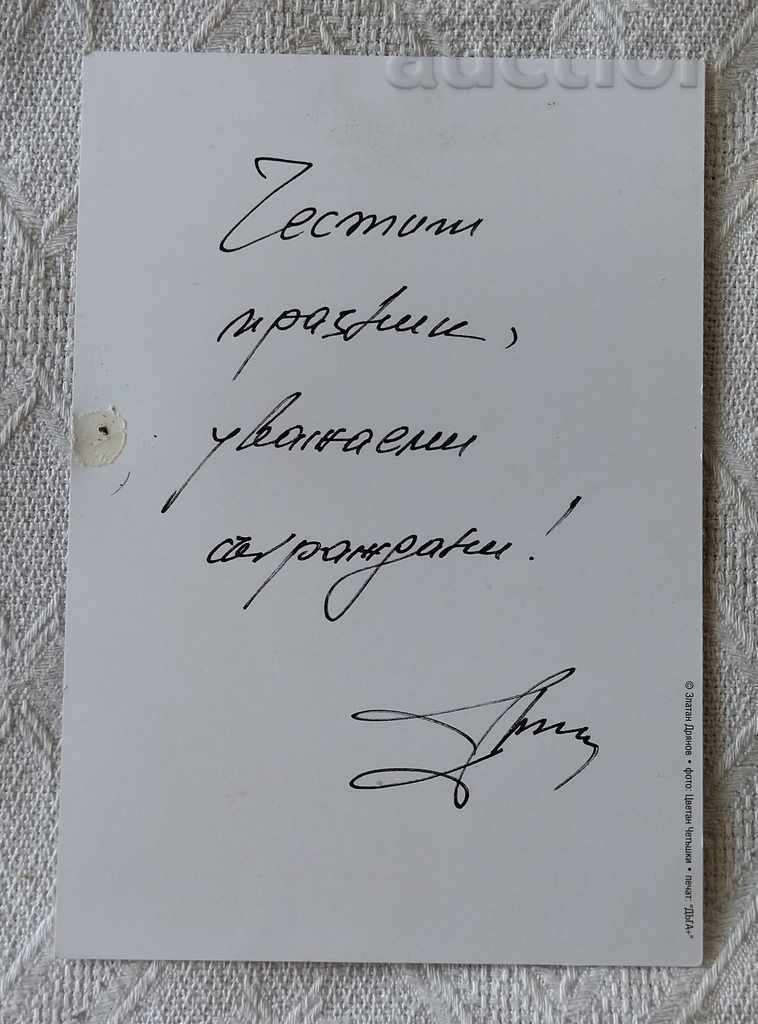 auction
Честити
празници,
уважаеми
съграждани!
© Златан Дрянов • фото: Цветан Четъшки • печат: "ДЪГА+"